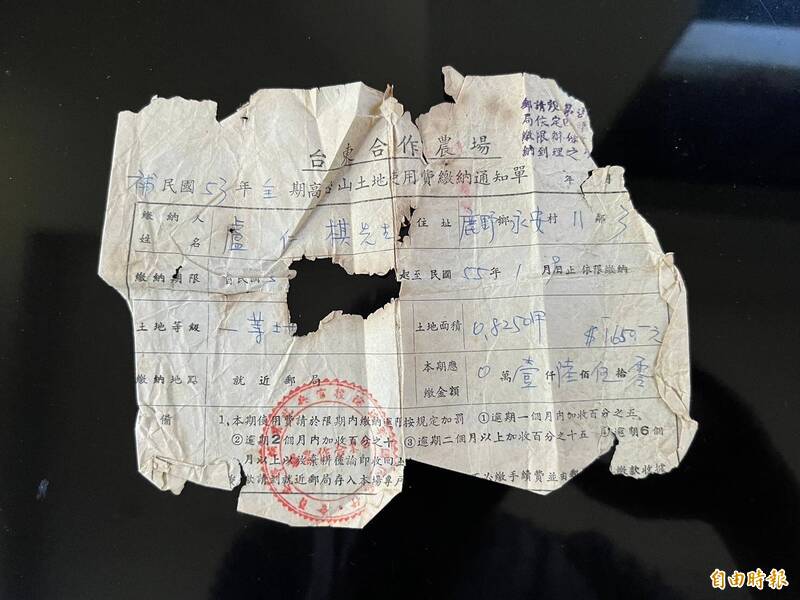 郵請設
局依定
繳限辦
納到理之
台東合作農場
補民國53年全期高 山土地使用費繳納通知單
年 月
繳納人姓名 盧仁棋先生 住址 鹿野鄉永安村11鄰
繳納期限 自民國 起至民國55年1月 日止依限繳納
土地等級 一等 土地面積 0.8250甲 $1650元
繳納地點 就近郵局 本期應繳金額 0萬壹仟陸佰伍拾零
備 1.本期使用費請於限期內繳納逾 按規定加罰 ①逾期一個月內加收百分之五
②逾期2個月內加收百分之十 ③逾期二個月以上加收百分之十五 ④逾期6個
月以上以放棄耕種論即收回
繳請到就近郵局存入本場專戶 必繳手續費並由郵 繳款收據
自由時報